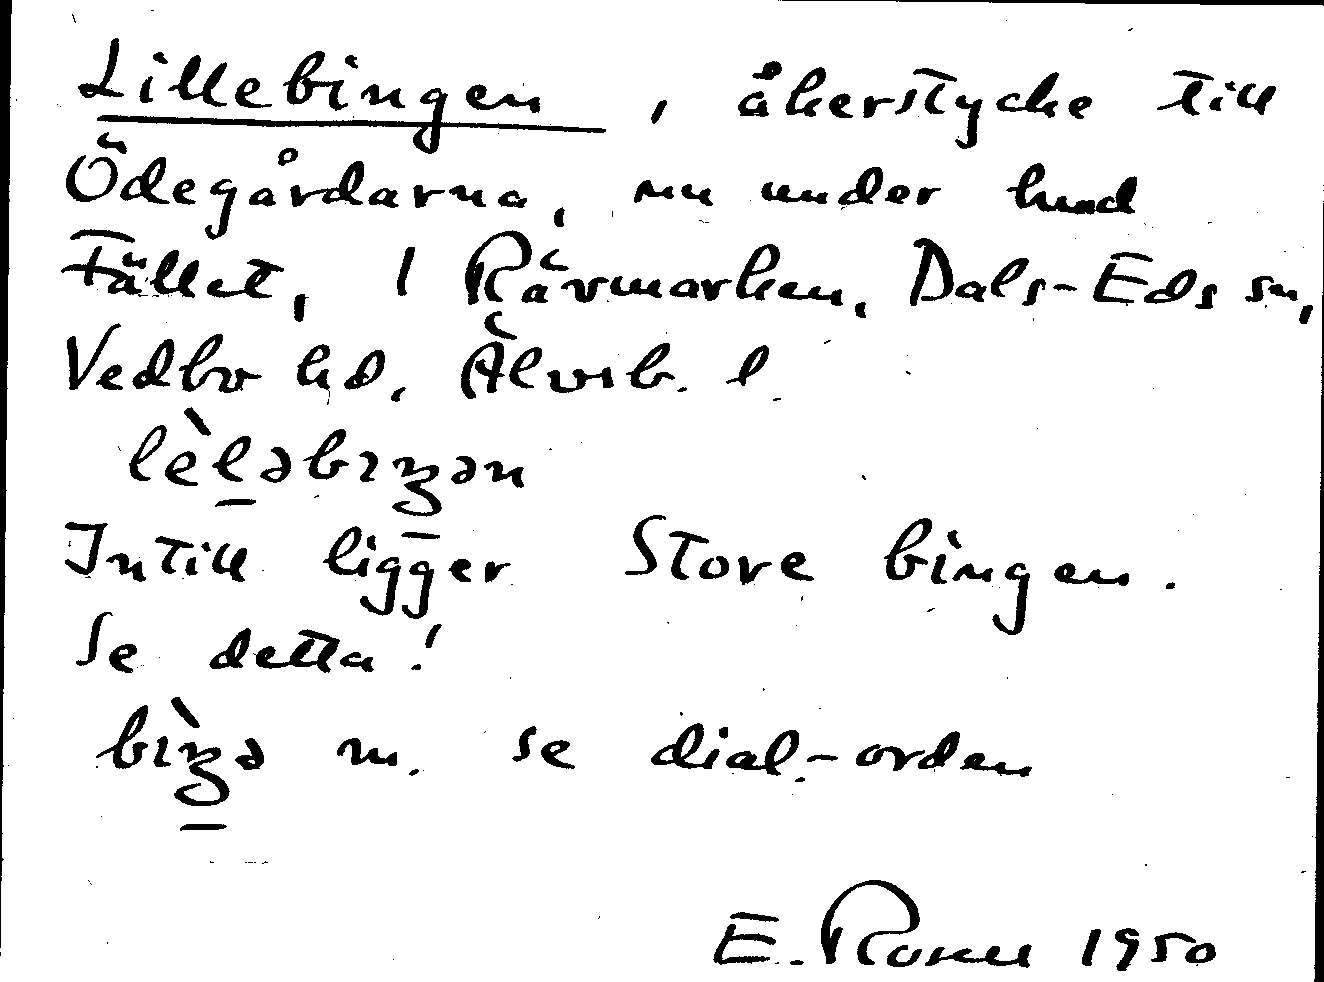 Lillebingen, åkerstycke till
Ödegårdarna, nu under hmd
Fället, i Rävmarken, Dals-Eds sn,
Vedbo hd, Älvsb. l.
lèləbıŋən
Intill ligger Store bingen.
Se detta!
bìŋə m. se dial.-orden
E. Rosell 1950